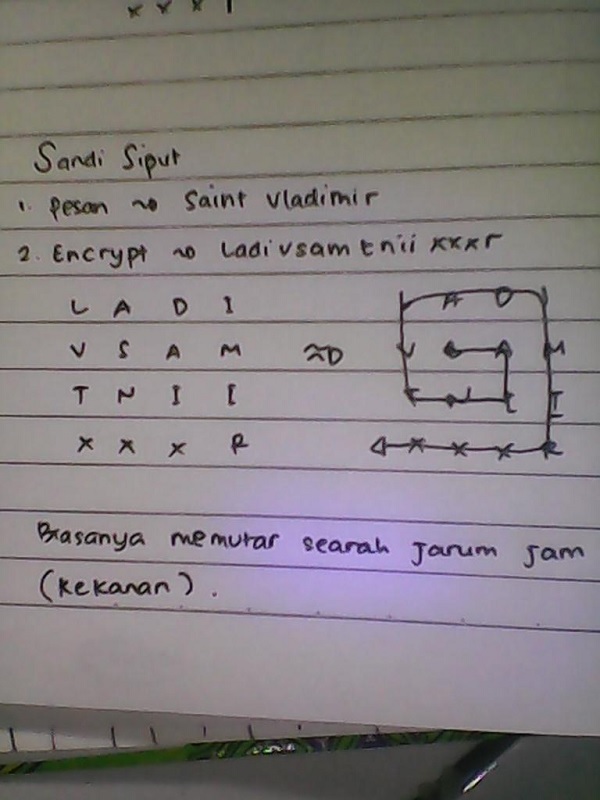 x x x
Sandi Siput
1. Pesan ~> Saint Vladimir
2. Encrypt ~> Ladi vsam tnii xxxr
L A D I
V S A M
T N I I
X X X R
A D
V S A M
T N I I
X X X R
Biasanya memutar searah jarum jam
(kekanan).